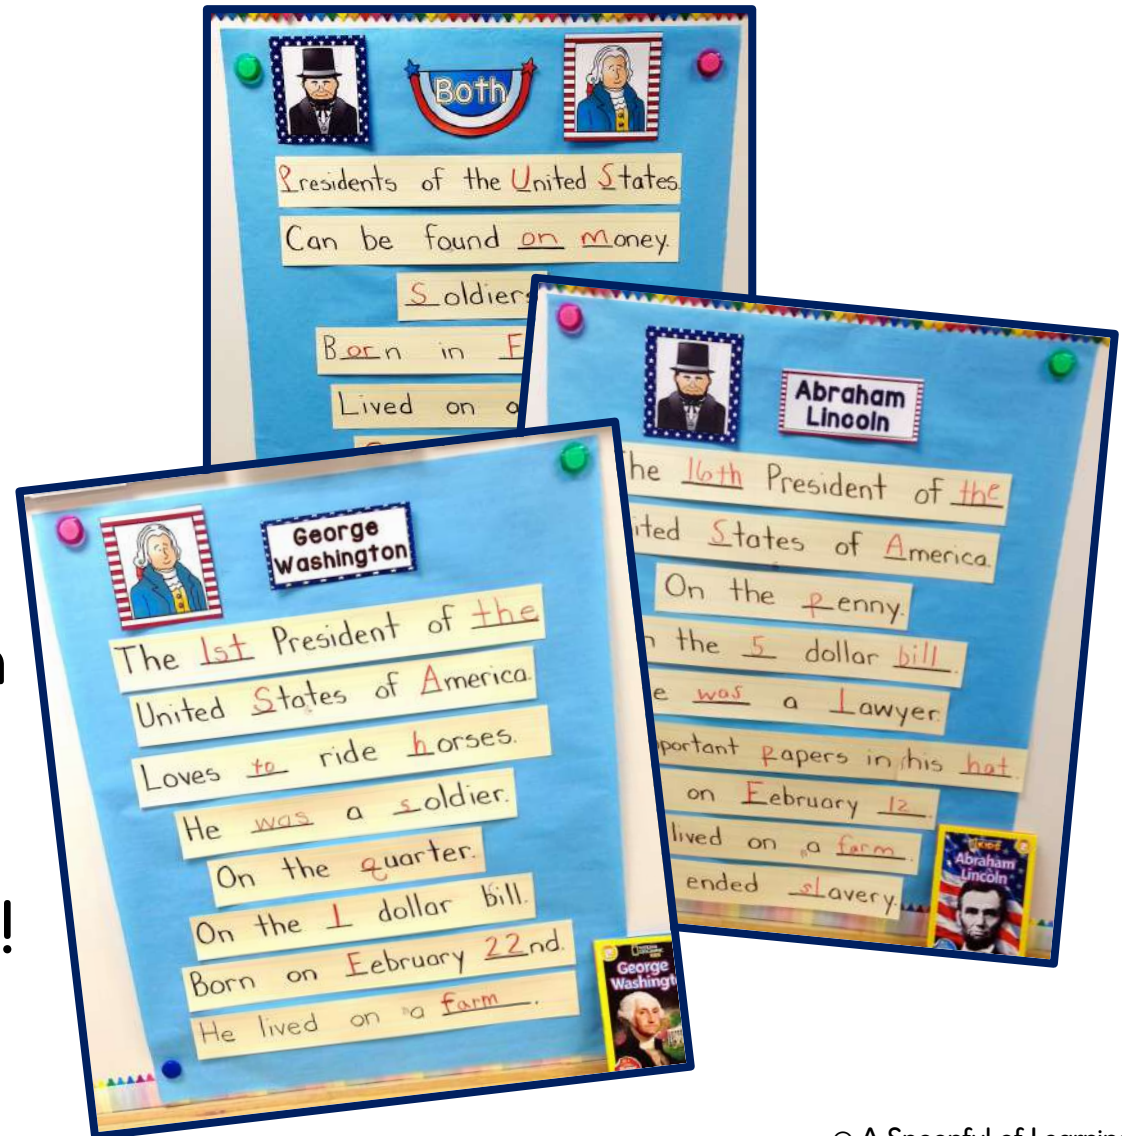 Both
Presidents of the United States.
Can be found on money.
Soldiers
Born in F
Lived on a
Abraham
Lincoln
The 16th President of the
United States of America.
On the penny.
the 5 dollar bill.
was a Lawyer.
papers in his hat.
on February 12.
lived on a farm.
ended slavery.
Abraham
Lincoln
George
Washington
The 1st President of the
United States of America.
Loves to ride horses.
He was a soldier.
On the quarter.
On the 1 dollar bill.
Born on February 22nd.
He lived on a farm.
NATIONAL
GEOGRAPHIC
KIDS
George
Washingt
!
© A Spoonful of Learning